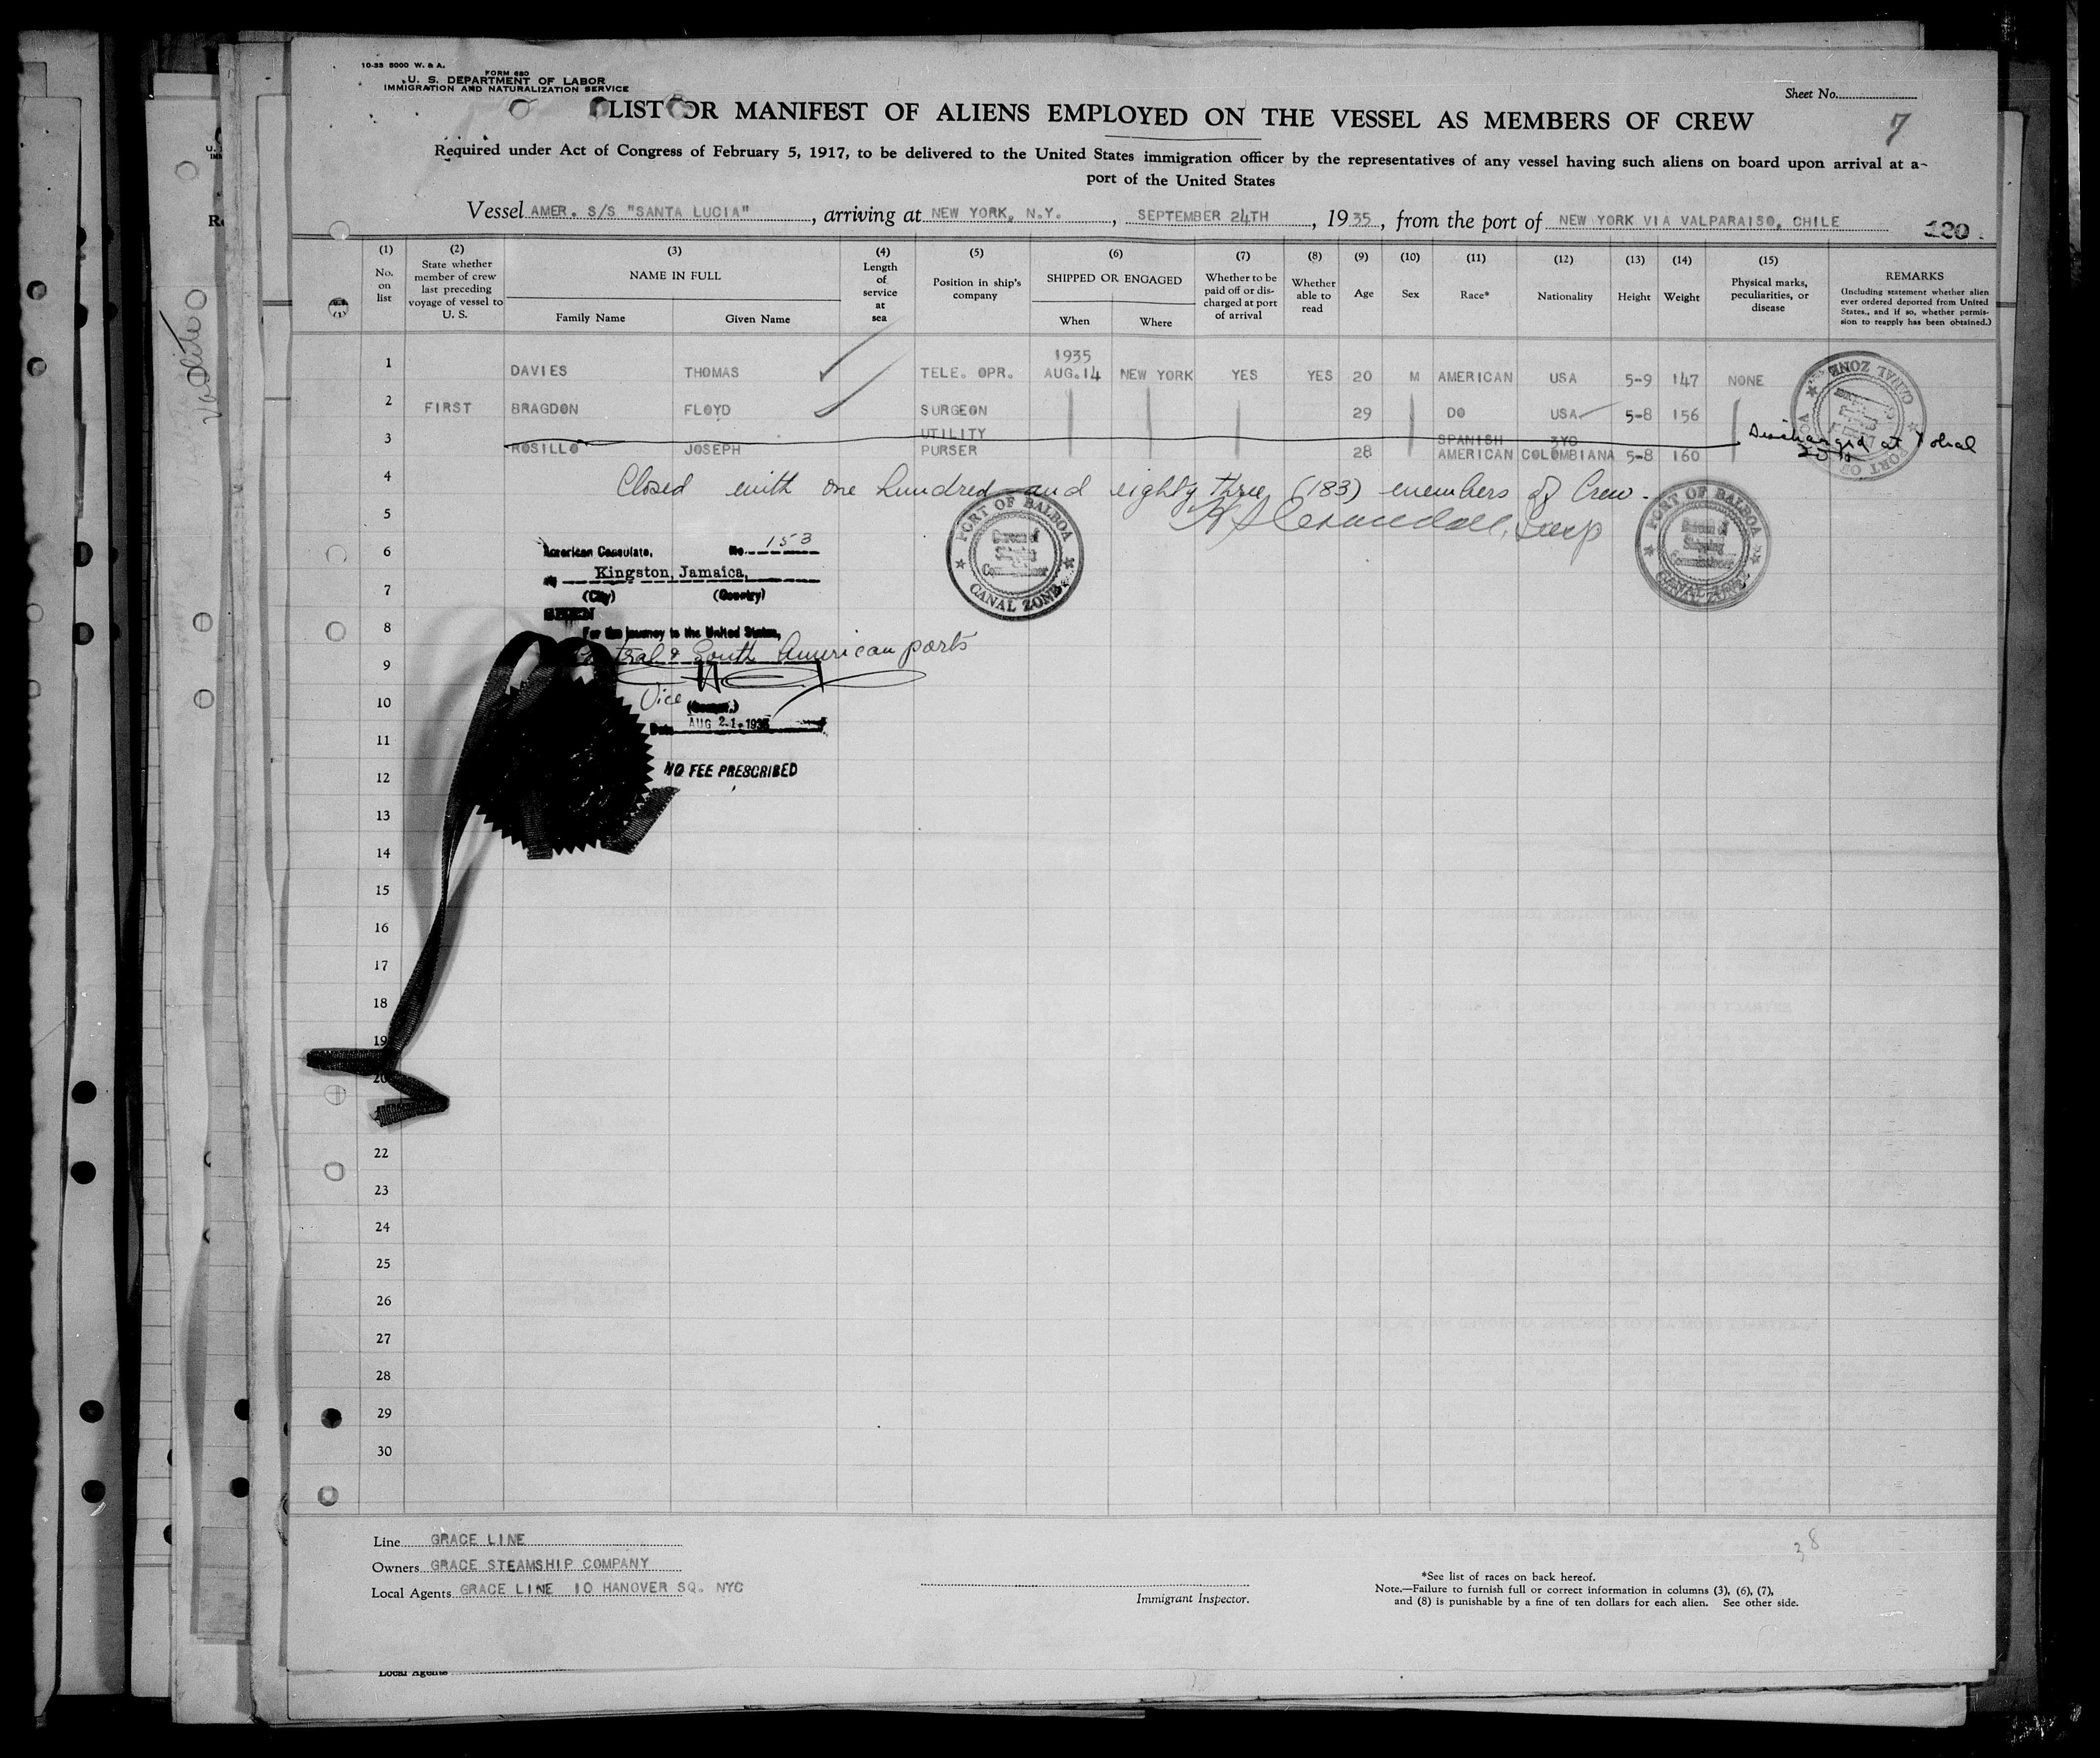 10-33 5000 W. & A.
FORM 680
U. S. DEPARTMENT OF LABOR
IMMIGRATION AND NATURALIZATION SERVICE
Sheet No.
LIST OR MANIFEST OF ALIENS EMPLOYED ON THE VESSEL AS MEMBERS OF CREW
7
Required under Act of Congress of February 5, 1917, to be delivered to the United States immigration officer by the representatives of any vessel having such aliens on board upon arrival at a
port of the United States
Vessel AMER. S/S "SANTA LUCIA", arriving at NEW YORK, N.Y., SEPTEMBER 24TH, 1935, from the port of NEW YORK VIA VALPARAISO, CHILE
120
(1) (2) (3) (4) (5) (6) (7) (8) (9) (10) (11) (12) (13) (14) (15)
No. on list
State whether member of crew last preceding voyage of vessel to U. S.
NAME IN FULL
Family Name
Given Name
Length of service at sea
Position in ship's company
SHIPPED OR ENGAGED
When
Where
Whether to be paid off or discharged at port of arrival
Whether able to read
Age
Sex
Race*
Nationality
Height
Weight
Physical marks, peculiarities, or disease
REMARKS
(Including statement whether alien ever ordered deported from United States, and if so, whether permission to reapply has been obtained.)
1 DAVIES THOMAS TELE. OPR. 1935 AUG.14 NEW YORK YES YES 20 M AMERICAN USA 5-9 147 NONE
2 FIRST BRAGDON FLOYD SURGEON 29 DO USA 5-8 156
3 ROSILLO JOSEPH UTILITY PURSER 28 SPANISH AMERICAN COLOMBIANA 5-8 160 Discharged at
4 Closed with one hundred and eighty three (183) members of Crew.
5
PORT OF BALBOA
CANAL ZONE
PORT OF BALBOA
Bureau of Shipping Commissioner
CANAL ZONE
6 American Consulate, No. 153
Kingston, Jamaica,
7 (City) (Country)
SEEN
8 For the journey to the United States,
9 Central & South American ports
Vice
10 (Consul.)
Date AUG 21 1935
11
12 NO FEE PRESCRIBED
13
14
15
16
17
18
19
20
22
23
24
25
26
27
28
29
30
Line GRACE LINE
Owners GRACE STEAMSHIP COMPANY
Local Agents GRACE LINE 10 HANOVER SQ. NYC
Immigrant Inspector.
38
*See list of races on back hereof.
Note.—Failure to furnish full or correct information in columns (3), (6), (7),
and (8) is punishable by a fine of ten dollars for each alien. See other side.
Local Agents